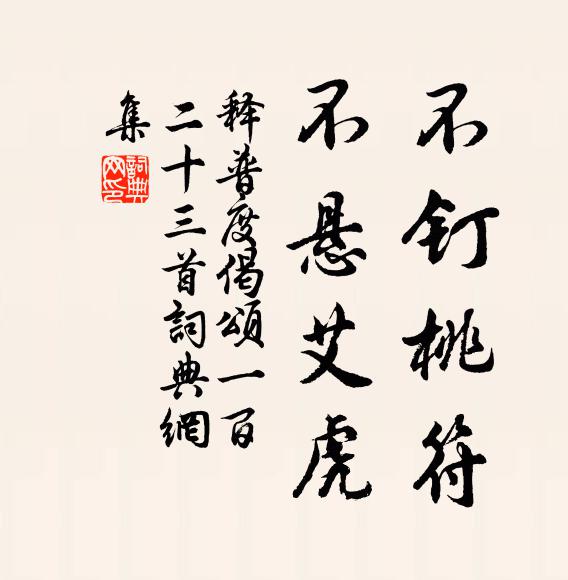 不钉桃符
不悬艾虎
释普度偈頌一百
二十三首詞典網
集
詞典
网印